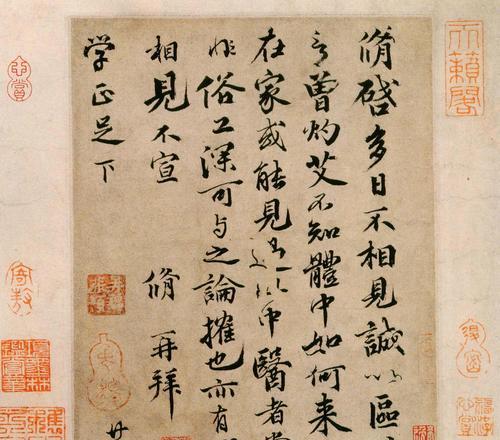 脩啓多日不相見誠以區
言曾灼艾不知體中如何來
在家或能見過此中醫者常
非俗工深可与之論搉也亦有
相見不宣 脩再拜
学正足下 廿
天籟閣